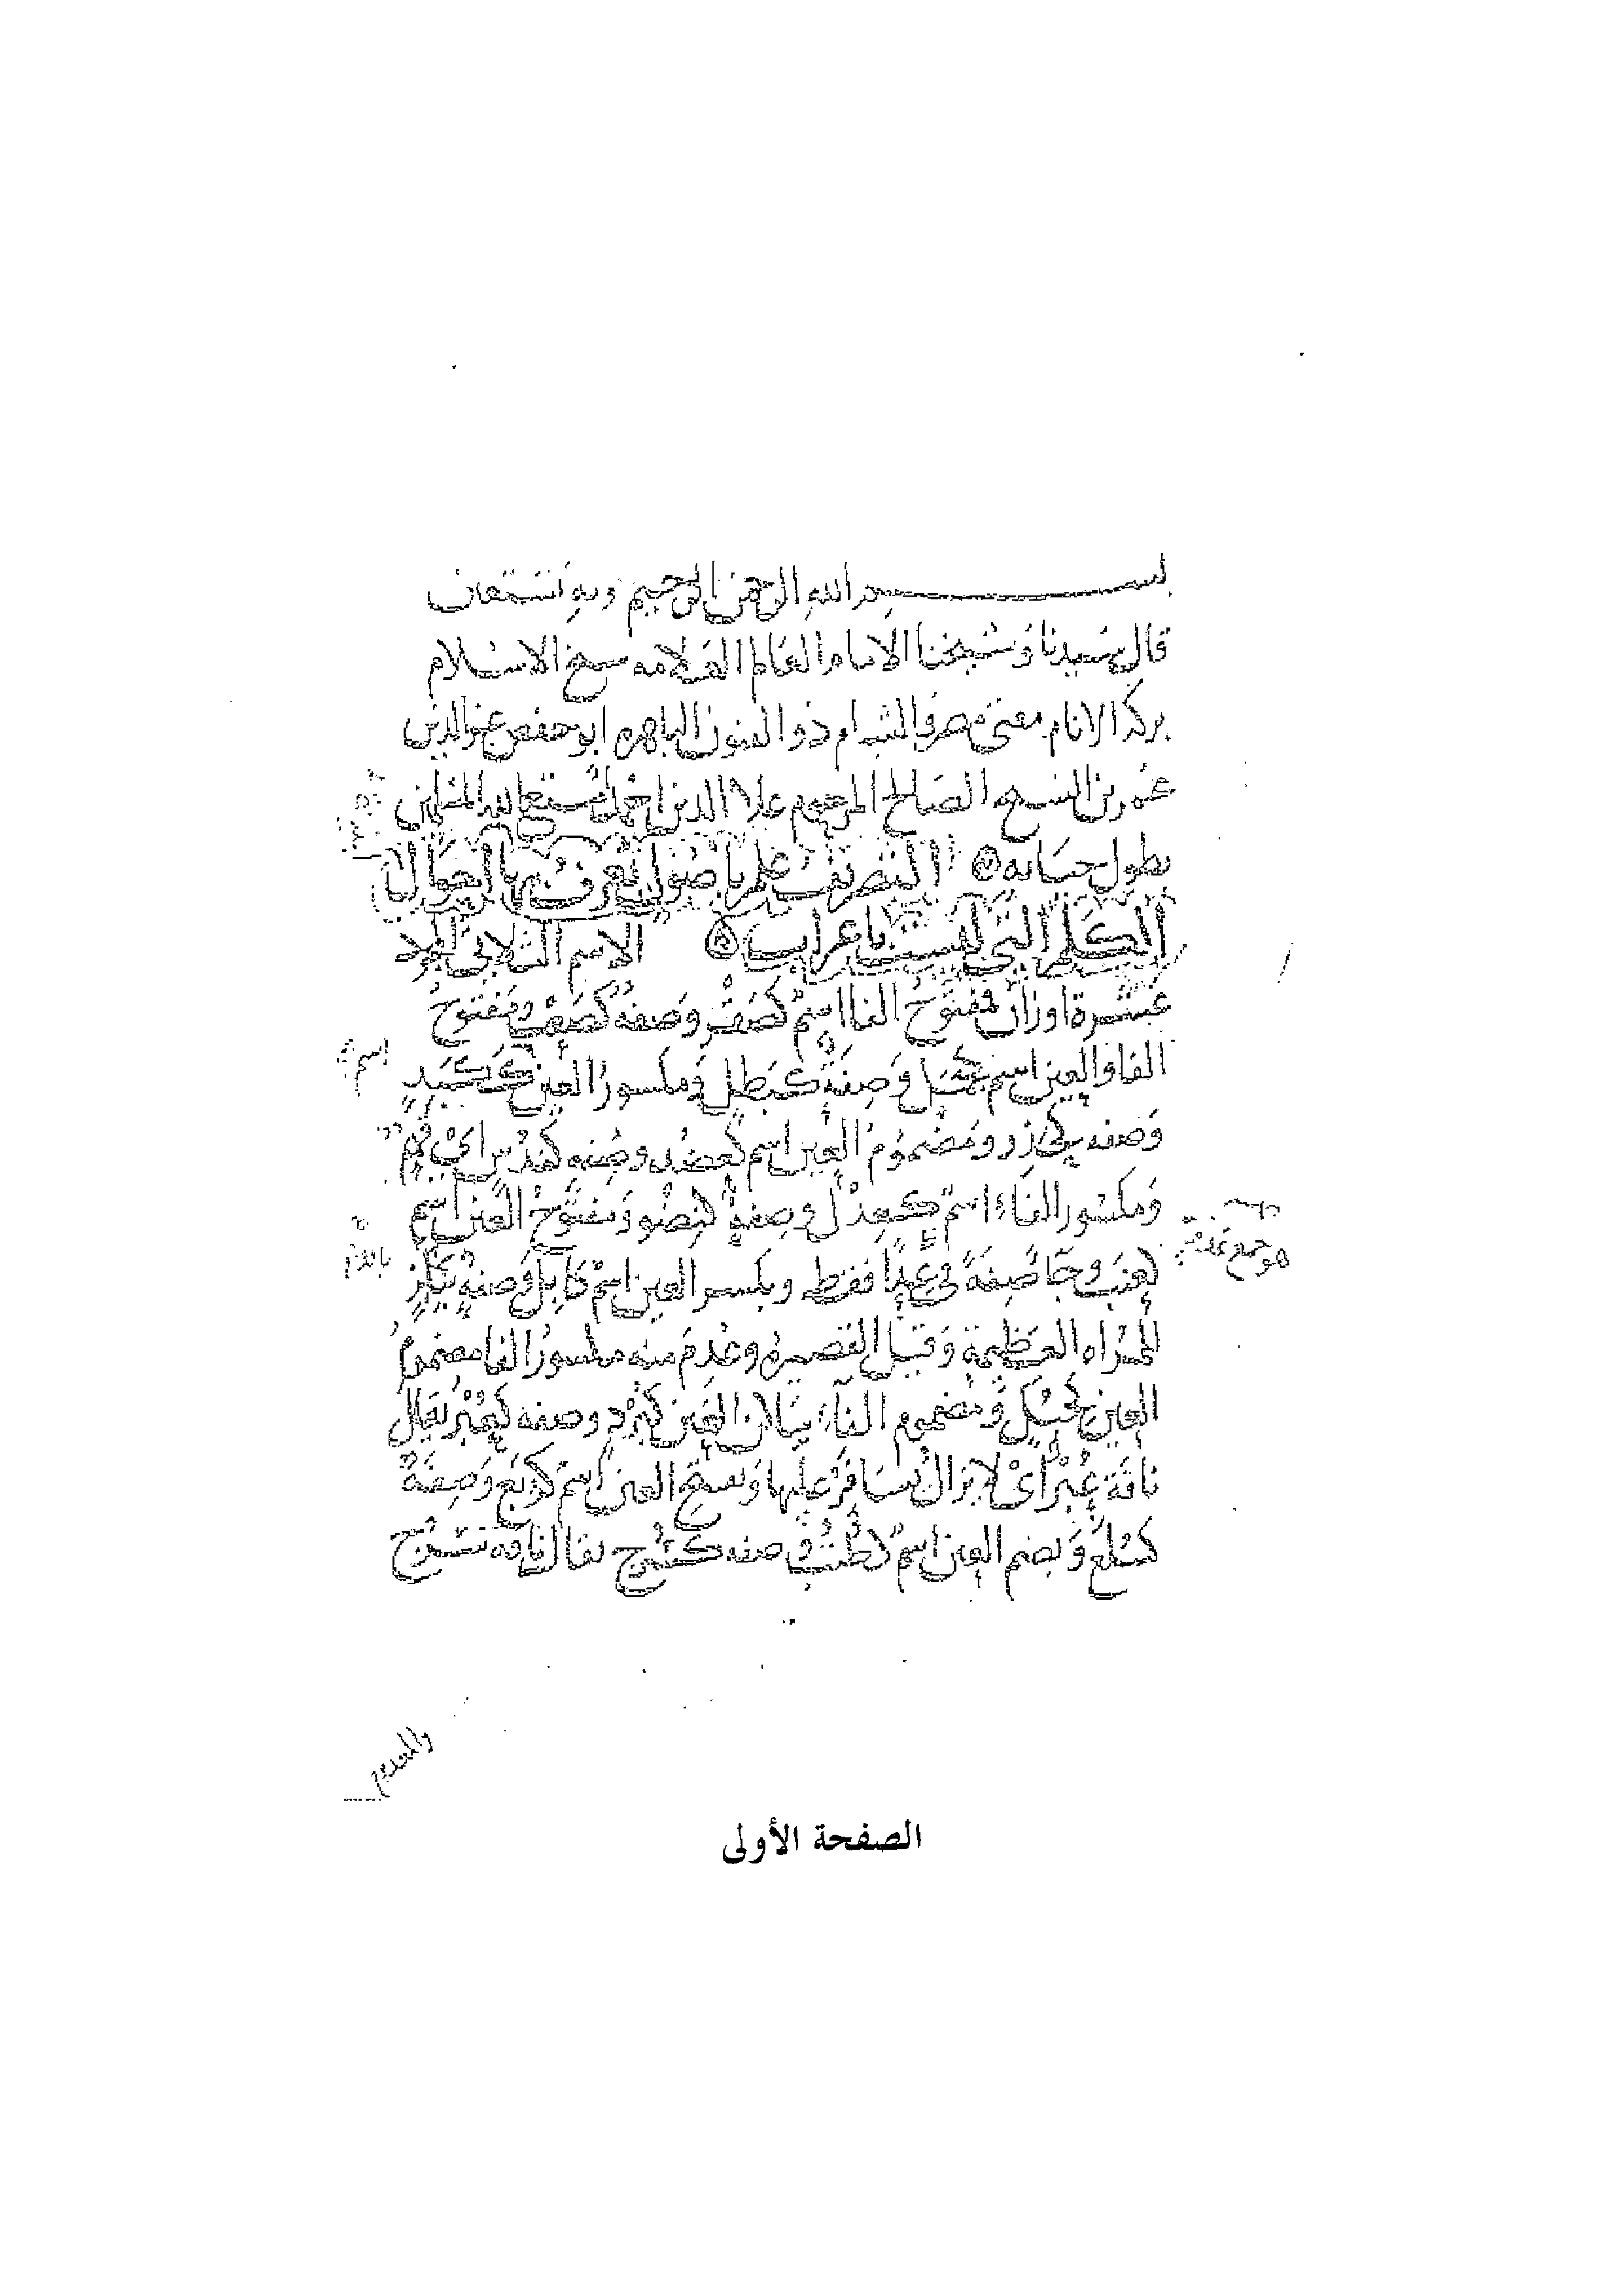 بسم الله الرحمن الرحيم وبه نستعين
قال سيدنا وشيخنا الامام العالم العلامه شيخ الاسلام
بركة الانام مفتى مصر والشام ذو الفنون الباهره ابو حفص عز الدين
عمر بن الشيخ الصالح المرحوم علا الدين احمد متع الله المسلمين
بطول حياته التصريف علم باصول تعرف بها احوال
الكلم التى ليست باعراب الاسم الثلاثى المجرد
عشرة اوزان مفتوح الفا اسم كصقر وصفه كصعب ومفتوح
الفا والعين اسم وصفة كبطل ومكسور العين ككبد
وصفه كحذر ومضموم العين اسم كعضد وصفه كندس اى فهم
ومكسور الفاء اسم كعدل وصفة كنضو ومفتوح العين اسم
كعنب وجا صفة فى عدا فقط وبكسر العين اسم كابل وصفة كبلز
للمراه العظيمة وقيل القصيره وعدم منه مكسور الفا مضموم
العين كحبك ومضموم الفاء ساكن العين كبرد وصفه كعبر يقال
ناقة عبر اى لا يزال يسافر عليها وبفتح العين اسم كربع وصفة
كـ وبضم العين اسم كطنب وصفه كسرح يقال ناقه سرح
اسم
هو جمع
والمعدوم
الصفحة الأولى